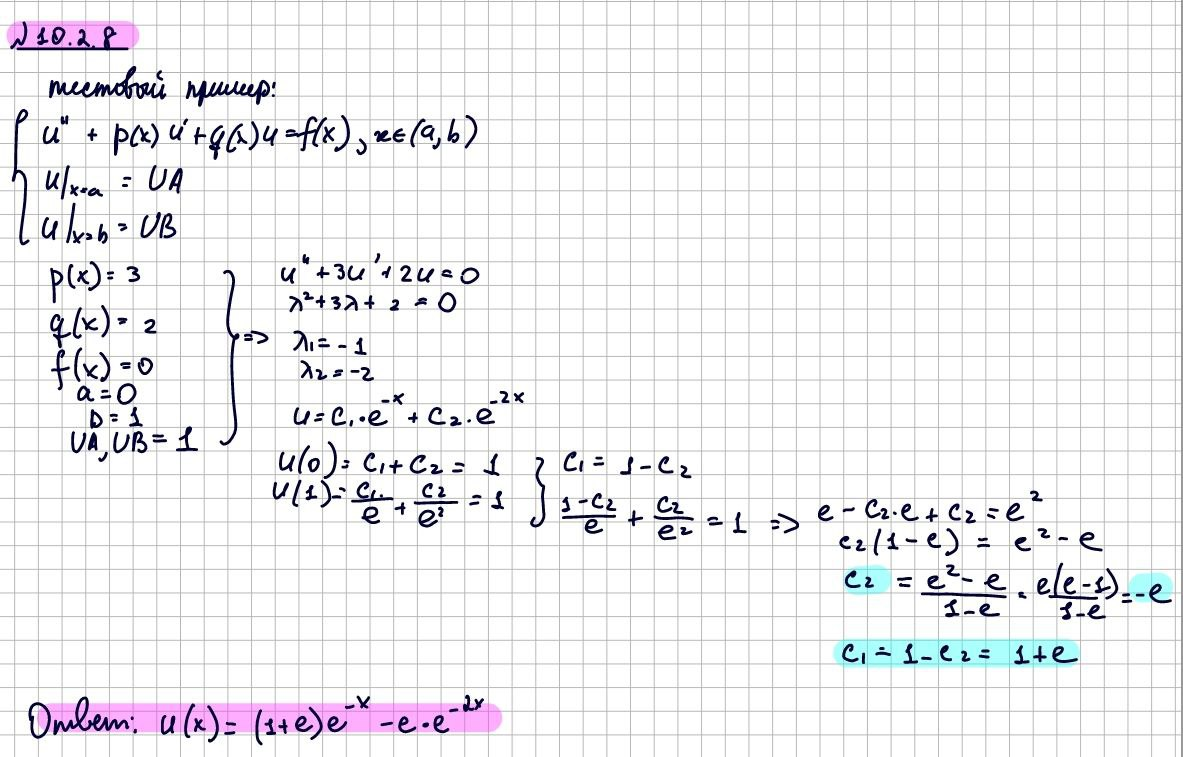 № 10.2.8
тестовый пример:
u'' + p(x) u' + q(x) u = f(x), x ∈ (a, b)
u|x=a = UA
u|x=b = UB
p(x) = 3
q(x) = 2
f(x) = 0
a = 0
b = 1
UA, UB = 1
=>
u'' + 3u' + 2u = 0
λ² + 3λ + 2 = 0
λ₁ = -1
λ₂ = -2
u = C₁·e^{-x} + C₂·e^{-2x}
u(0) = C₁ + C₂ = 1
u(1) = C₁/e + C₂/e² = 1
C₁ = 1 - C₂
(1-C₂)/e + C₂/e² = 1 =>
e - C₂·e + C₂ = e²
C₂(1-e) = e² - e
C₂ = (e² - e)/(1-e) = e(e-1)/(1-e) = -e
C₁ = 1 - C₂ = 1+e
Ответ: u(x) = (1+e)e^{-x} - e·e^{-2x}